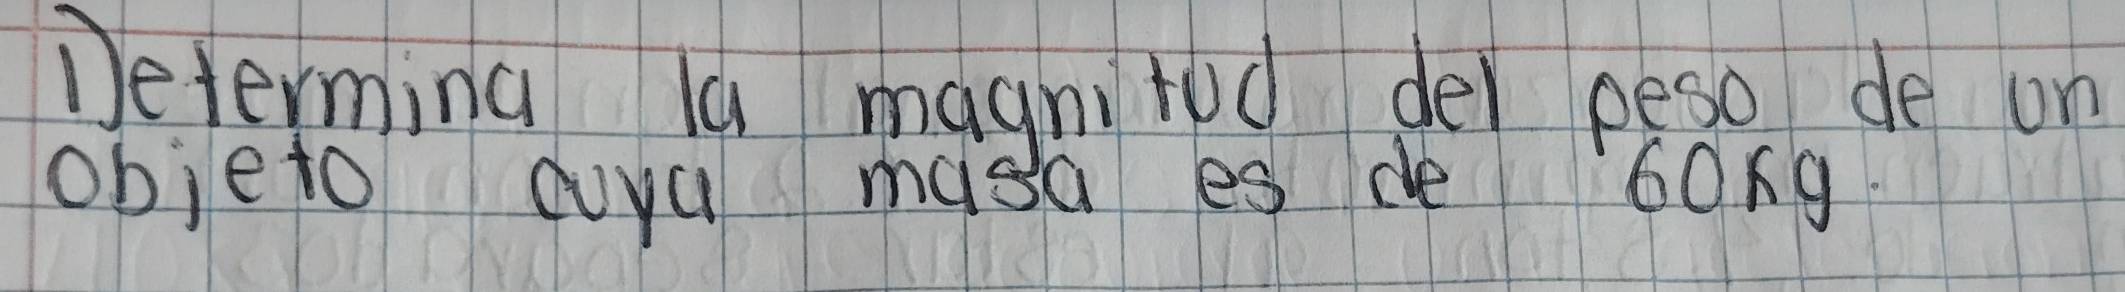 Determina la magnitud del peso de un
objeto cuya masa es de 60Kg.